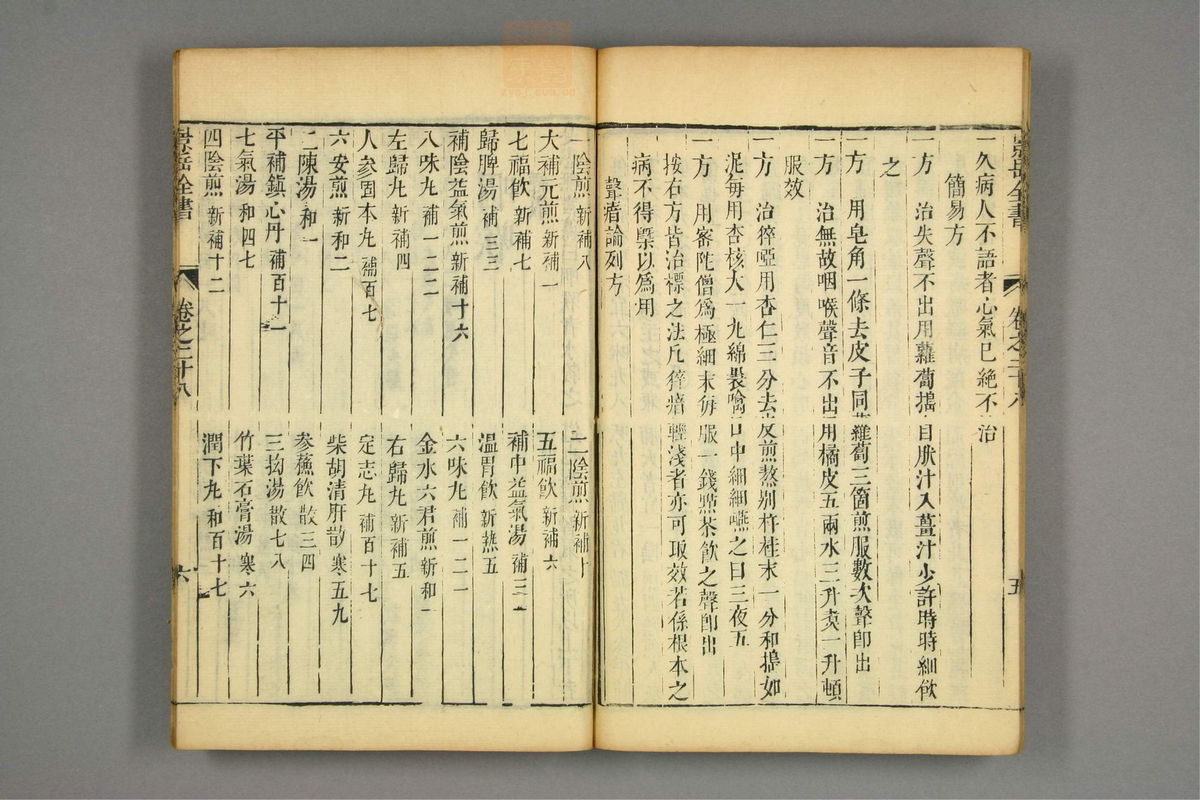 景岳全書 卷之二十八 五
一久病人不語者心氣已絕不治
簡易方
一方 治失聲不出用蘿蔔搗自肰汁入薑汁少許時時細飲
之
一方 用皂角一條去皮子同蘿蔔三箇煎服數次聲卽出
一方 治無故咽喉聲音不出用橘皮五兩水三升煑一升頓
服效
一方 治猝啞用杏仁三分去皮煎熬别杵桂末一分和搗如
泥每用杏核大一丸綿裹噙口中細細嚥之日三夜五
一方 用密陀僧爲極細末每服一錢點茶飮之聲卽出
按右方皆治標之法凡猝瘖輕淺者亦可取效若係根本之
病不得槩以爲用
聲瘖論列方
一陰煎 新補八 二陰煎 新補十
大補元煎 新補一 五福飮 新補六
七福飮 新補七 補中益氣湯 補三一
歸脾湯 補三三 溫胃飮 新熱五
補陰益氣煎 新補十六 六味丸 補一二一
八味丸 補一二二 金水六君煎 新和一
左歸丸 新補四 右歸丸 新補五
人參固本丸 補百七 定志丸 補百十七
六安煎 新和二 柴胡清肝散 寒五九
二陳湯 和一 參蘇飮 散三四
平補鎮心丹 補百十一 三拗湯 散七八
七氣湯 和四七 竹葉石膏湯 寒六
四陰煎 新補十二 潤下丸 和百十七
景岳全書 卷之二十八 六